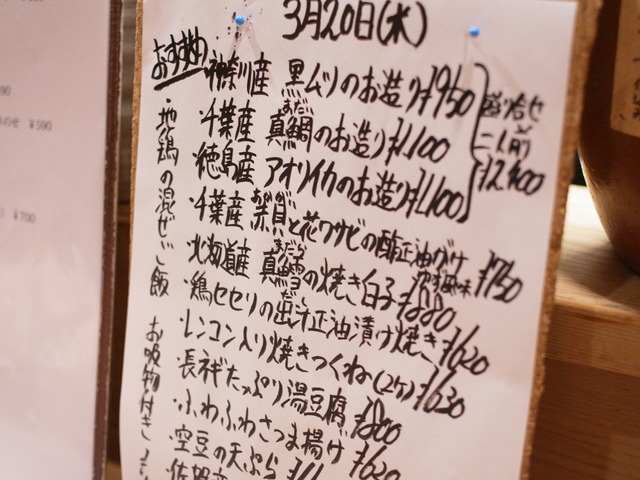 3月20日(水)
おすすめ
・神奈川産 黒ムツのお造り ¥950
・千葉産 真鯛のお造り ¥1,100
まだい
・徳島産 アオリイカのお造り ¥1,100
盛り合せ
二人前
¥2,400
・千葉産 と花ワサビの酢正油がけ ゆず風味 ¥750
・北海道産 真鱈の焼き白子 ¥880
まだら
・鶏セセリの出汁正油漬け焼き ¥620
だし
・レンコン入り焼きつくね(2ケ) ¥630
・長ネギたっぷり湯豆腐 ¥800
・ふわふわさつま揚げ ¥620
・空豆の天ぷら
地鶏の混ぜご飯 お吸物付き
¥590
¥700